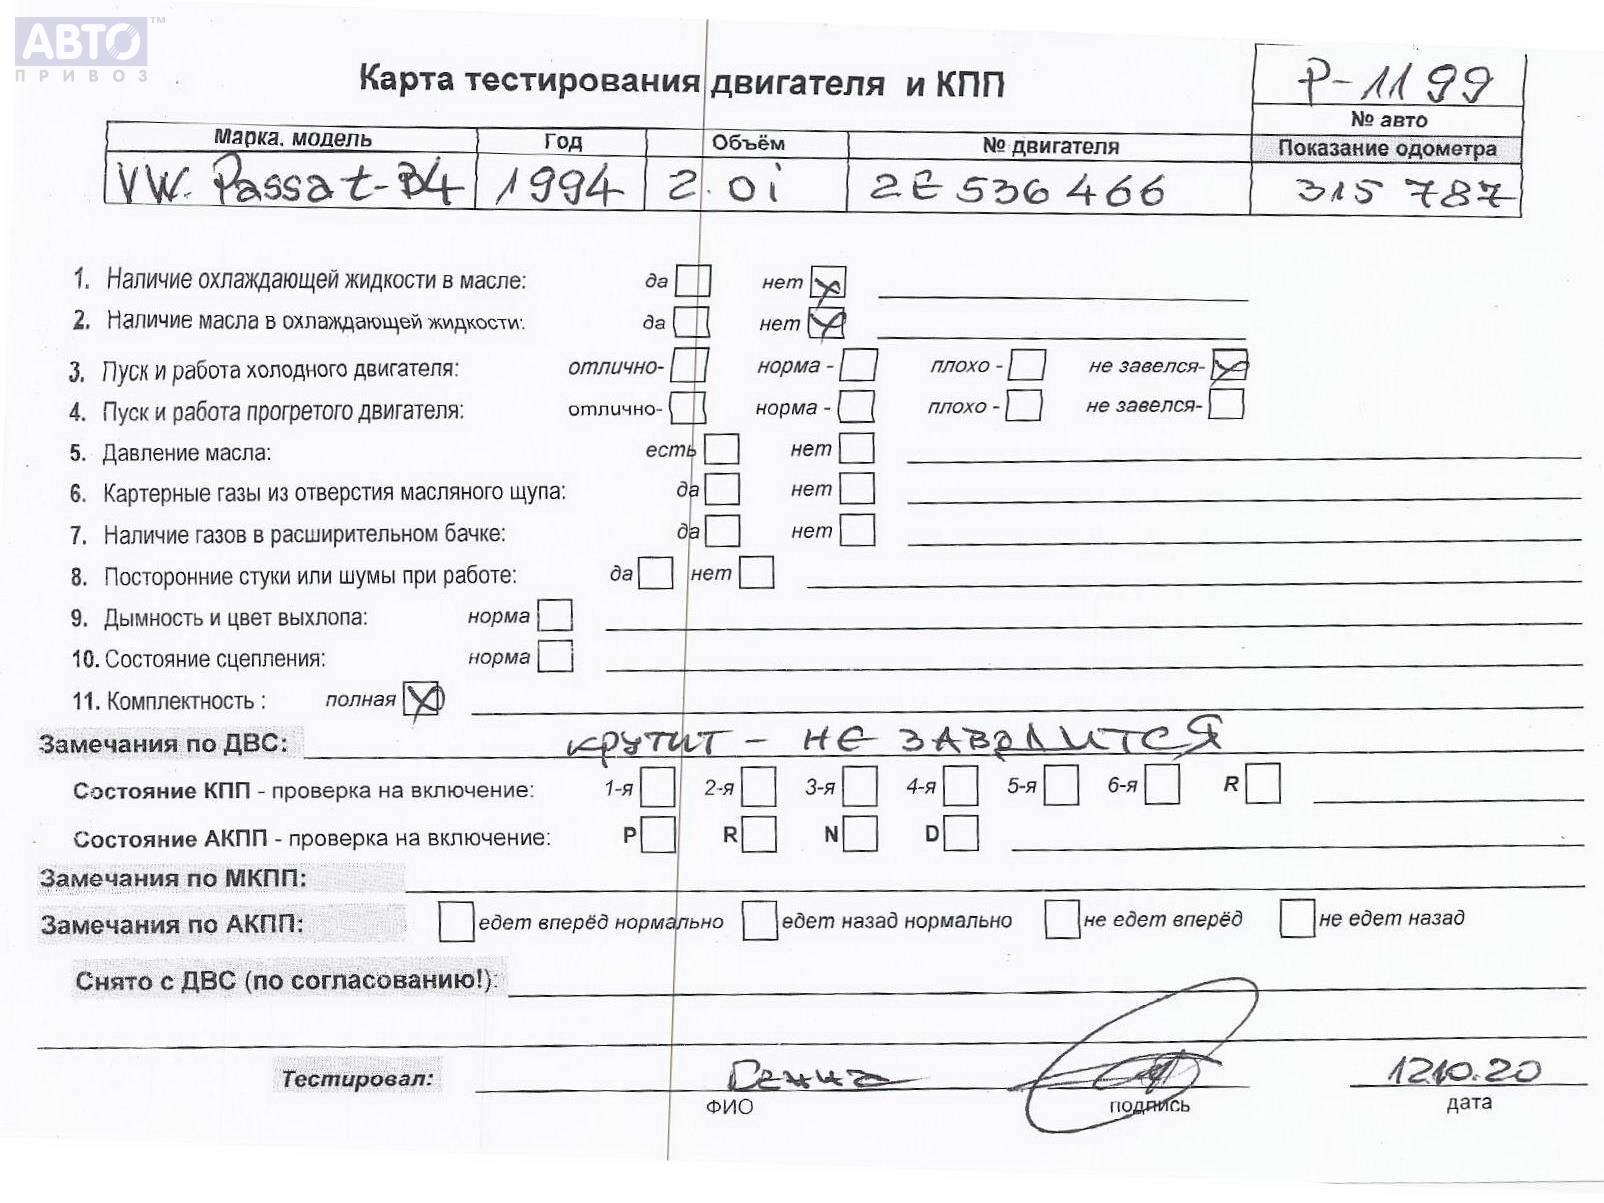 АВТО™
ПРИВОЗ
Карта тестирования двигателя и КПП
P-1199
№ авто
Марка, модель Год Объём № двигателя Показание одометра
VW. Passat-B4 1994 2.0i 2E 536 466 315 787
1. Наличие охлаждающей жидкости в масле: да нет
2. Наличие масла в охлаждающей жидкости: да нет
3. Пуск и работа холодного двигателя: отлично- норма - плохо - не завелся-
4. Пуск и работа прогретого двигателя: отлично- норма - плохо - не завелся-
5. Давление масла: есть нет
6. Картерные газы из отверстия масляного щупа: да нет
7. Наличие газов в расширительном бачке: да нет
8. Посторонние стуки или шумы при работе: да нет
9. Дымность и цвет выхлопа: норма
10. Состояние сцепления: норма
11. Комплектность : полная
Замечания по ДВС: крутит - не заводится
Состояние КПП - проверка на включение: 1-я 2-я 3-я 4-я 5-я 6-я R
Состояние АКПП - проверка на включение: P R N D
Замечания по МКПП:
Замечания по АКПП: едет вперёд нормально едет назад нормально не едет вперёд не едет назад
Снято с ДВС (по согласованию!):
Тестировал: 12.10.20
ФИО подпись дата